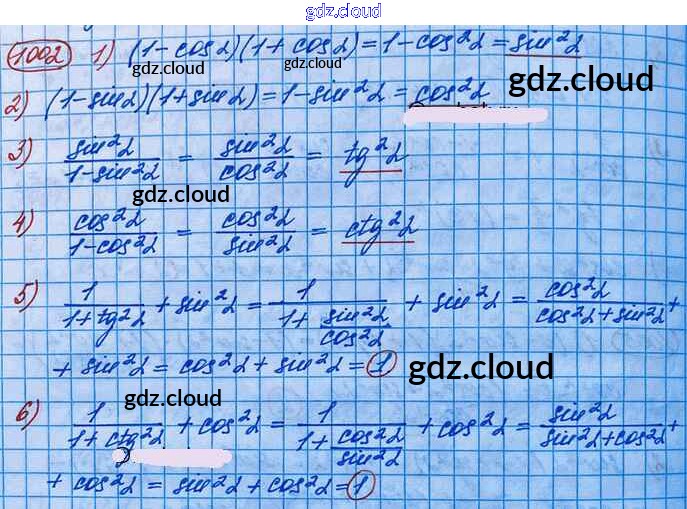 gdz.cloud
1002 1) (1 - cos α)(1 + cos α) = 1 - cos²α = sin²α
gdz.cloud gdz.cloud gdz.cloud
2) (1 - sin α)(1 + sin α) = 1 - sin²α = cos²α
3) sin²α / 1 - sin²α = sin²α / cos²α = tg²α
gdz.cloud
4) cos²α / 1 - cos²α = cos²α / sin²α = ctg²α
5) 1 / 1 + tg²α + sin²α = 1 / 1 + sin²α / cos²α + sin²α = cos²α / cos²α + sin²α +
+ sin²α = cos²α + sin²α = 1
gdz.cloud
gdz.cloud
6) 1 / 1 + ctg²α + cos²α = 1 / 1 + cos²α / sin²α + cos²α = sin²α / sin²α + cos²α +
+ cos²α = sin²α + cos²α = 1